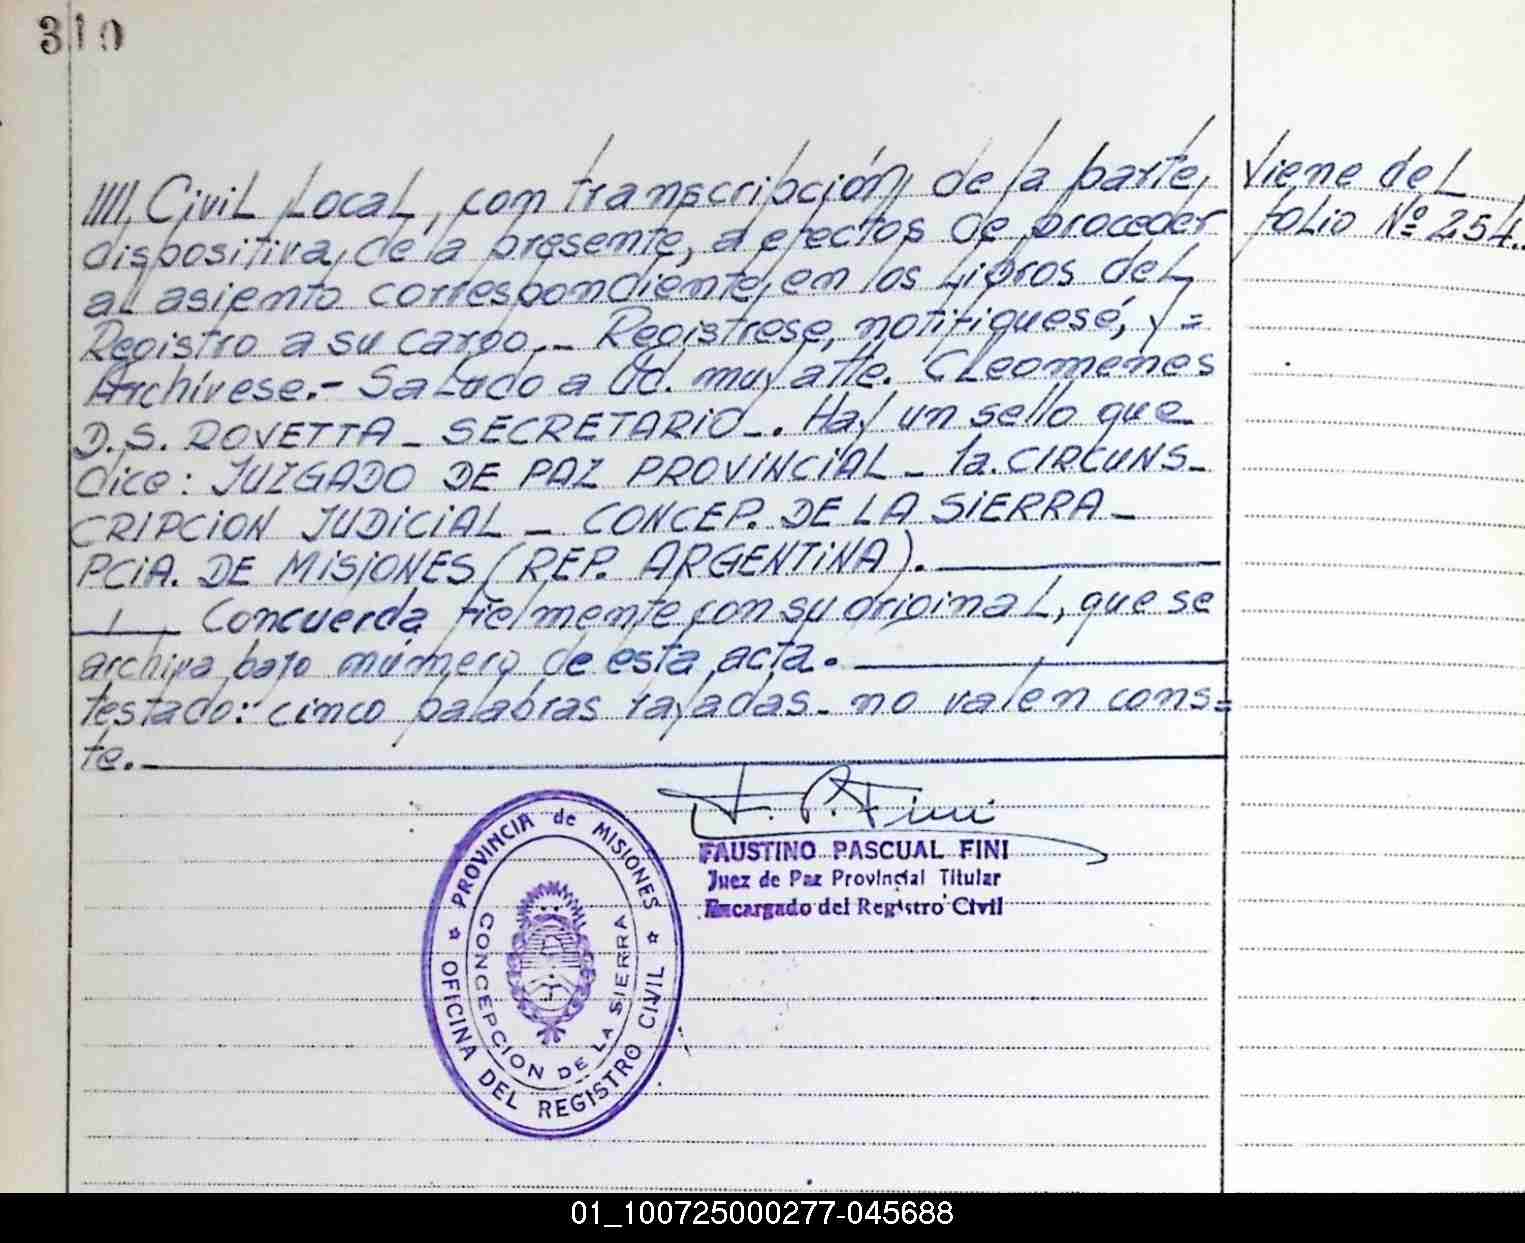 310
//// Civil Local, con transcripción de la parte
dispositiva, de la presente, a efectos de proceder
al asiento correspondiente, en los Libros del
Registro a su cargo.- Registrese, notifiquesé, y =
Archívese.- Saludo a Ud. muy atte. CLeomenes
D.S. ROVETTA - SECRETARIO -. Hay un sello que
dice: JUZGADO DE PAZ PROVINCIAL - 1a. CIRCUNS-
CRIPCION JUDICIAL - CONCEP. DE LA SIERRA -
PCIA. DE MISIONES (REP. ARGENTINA).
Concuerda fielmente con su original, que se
archiva bajo número de esta acta.
testado: cinco palabras rayadas - no valen cons=
te.
Viene del
folio Nº 254.
F. P. Fini
FAUSTINO PASCUAL FINI
Juez de Paz Provincial Titular
Encargado del Registro Civil
PROVINCIA de MISIONES
CONCEPCION DE LA SIERRA
OFICINA DEL REGISTRO CIVIL
01_100725000277-045688